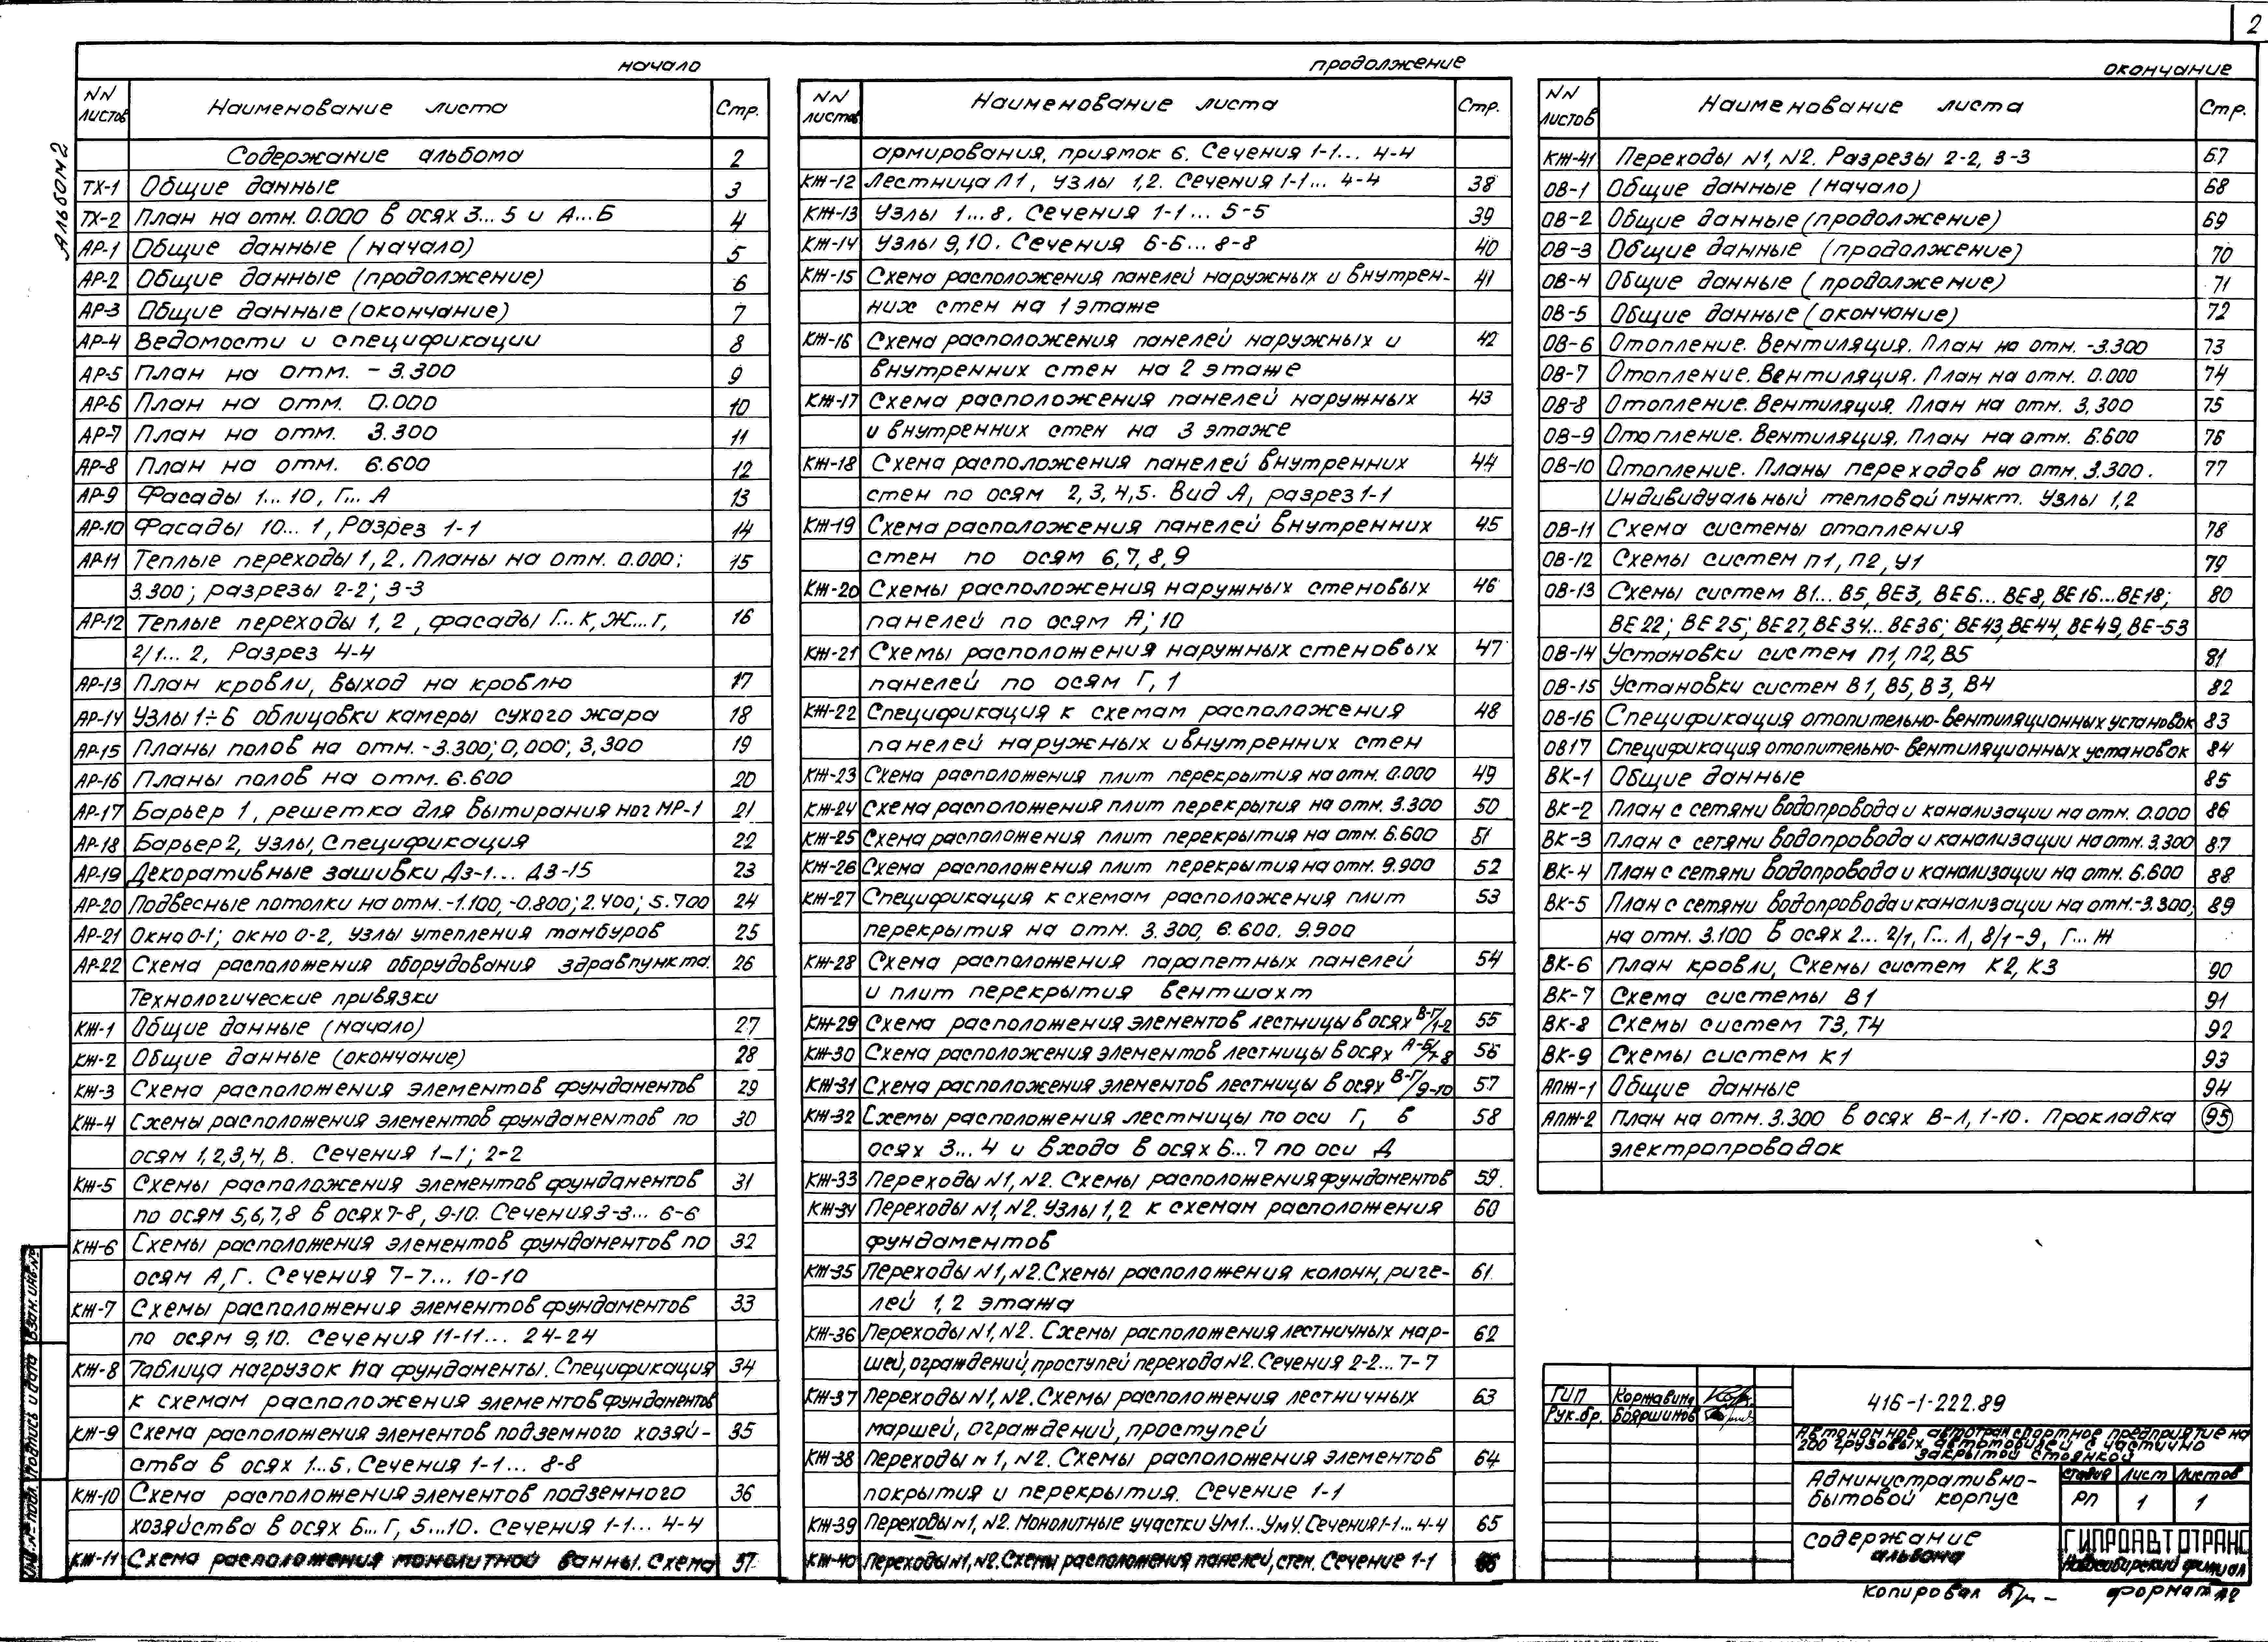 2
Альбом 2
начало
NN листов Наименование листа Стр.
Содержание альбома 2
ТХ-1 Общие данные 3
ТХ-2 План на отм. 0.000 в осях 3...5 и А...Б 4
АР-1 Общие данные (начало) 5
АР-2 Общие данные (продолжение) 6
АР-3 Общие данные (окончание) 7
АР-4 Ведомости и спецификации 8
АР-5 План на отм. -3.300 9
АР-6 План на отм. 0.000 10
АР-7 План на отм. 3.300 11
АР-8 План на отм. 6.600 12
АР-9 Фасады 1...10, Г...А 13
АР-10 Фасады 10...1, Разрез 1-1 14
АР-11 Теплые переходы 1, 2. Планы на отм. 0.000; 15
3.300; разрезы 2-2; 3-3
АР-12 Теплые переходы 1, 2, фасады Г...К, Ж...Г, 16
2/1...2, Разрез 4-4
АР-13 План кровли, выход на кровлю 17
АР-14 Узлы 1÷6 облицовки камеры сухого жара 18
АР-15 Планы полов на отм. -3.300; 0,000; 3,300 19
АР-16 Планы полов на отм. 6.600 20
АР-17 Барьер 1, решетка для вытирания ног МР-1 21
АР-18 Барьер 2, узлы, Спецификация 22
АР-19 Декоративные зашивки Дз-1...Дз-15 23
АР-20 Подвесные потолки на отм. -1.100, -0.800; 2.400; 5.700 24
АР-21 Окно О-1; окно О-2, узлы утепления тамбуров 25
АР-22 Схема расположения оборудования здравпункта. 26
Технологические привязки
КЖ-1 Общие данные (начало) 27
КЖ-2 Общие данные (окончание) 28
КЖ-3 Схема расположения элементов фундаментов 29
КЖ-4 Схемы расположения элементов фундаментов по 30
осям 1,2,3,4, В. Сечения 1-1; 2-2
КЖ-5 Схемы расположения элементов фундаментов 31
по осям 5,6,7,8 в осях 7-8, 9-10. Сечения 3-3... 6-6
КЖ-6 Схемы расположения элементов фундаментов по 32
осям А,Г. Сечения 7-7... 10-10
КЖ-7 Схемы расположения элементов фундаментов 33
по осям 9,10. Сечения 11-11... 24-24
КЖ-8 Таблица нагрузок на фундаменты. Спецификация 34
к схемам расположения элементов фундаментов
КЖ-9 Схема расположения элементов подземного хозяй- 35
ства в осях 1...5. Сечения 1-1... 8-8
КЖ-10 Схема расположения элементов подземного 36
хозяйства в осях Б...Г, 5...10. Сечения 1-1... 4-4
КЖ-11 Схема расположения монолитной ванны. Схема 37
продолжение
NN листов Наименование листа Стр.
армирования, приямок 6. Сечения 1-1... 4-4
КЖ-12 Лестница Л1, узлы 1,2. Сечения 1-1... 4-4 38
КЖ-13 Узлы 1...8. Сечения 1-1... 5-5 39
КЖ-14 Узлы 9,10. Сечения 6-6... 8-8 40
КЖ-15 Схема расположения панелей наружных и внутрен- 41
них стен на 1 этаже
КЖ-16 Схема расположения панелей наружных и 42
внутренних стен на 2 этаже
КЖ-17 Схема расположения панелей наружных 43
и внутренних стен на 3 этаже
КЖ-18 Схема расположения панелей внутренних 44
стен по осям 2,3,4,5. Вид А, разрез 1-1
КЖ-19 Схема расположения панелей внутренних 45
стен по осям 6,7,8,9
КЖ-20 Схемы расположения наружных стеновых 46
панелей по осям А; 10
КЖ-21 Схемы расположения наружных стеновых 47
панелей по осям Г, 1
КЖ-22 Спецификация к схемам расположения 48
панелей наружных и внутренних стен
КЖ-23 Схема расположения плит перекрытия на отм. 0.000 49
КЖ-24 Схема расположения плит перекрытия на отм. 3.300 50
КЖ-25 Схема расположения плит перекрытия на отм. 6.600 51
КЖ-26 Схема расположения плит перекрытия на отм. 9.900 52
КЖ-27 Спецификация к схемам расположения плит 53
перекрытия на отм. 3.300, 6.600. 9.900
КЖ-28 Схема расположения парапетных панелей 54
и плит перекрытия вентшахт
КЖ-29 Схема расположения элементов лестницы в осях В-Г/1-2 55
КЖ-30 Схема расположения элементов лестницы в осях А-Б/7-8 56
КЖ-31 Схема расположения элементов лестницы в осях В-Г/9-10 57
КЖ-32 Схемы расположения лестницы по оси Г, в 58
осях 3...4 и входа в осях 6...7 по оси Д
КЖ-33 Переходы N1, N2. Схемы расположения фундаментов 59
КЖ-34 Переходы N1, N2. Узлы 1,2 к схемам расположения 60
фундаментов
КЖ-35 Переходы N1, N2. Схемы расположения колонн, риге- 61
лей 1,2 этажа
КЖ-36 Переходы N1, N2. Схемы расположения лестничных мар- 62
шей, ограждений, проступей перехода N2. Сечения 2-2... 7-7
КЖ-37 Переходы N1, N2. Схемы расположения лестничных 63
маршей, ограждений, проступей
КЖ-38 Переходы N1, N2. Схемы расположения элементов 64
покрытия и перекрытия. Сечение 1-1
КЖ-39 Переходы N1, N2. Монолитные участки Ум1...Ум4. Сечения 1-1... 4-4 65
КЖ-40 Переходы N1, N2. Схемы расположения панелей, стен. Сечение 1-1 66
окончание
NN листов Наименование листа Стр.
КЖ-41 Переходы N1, N2. Разрезы 2-2, 3-3 67
ОВ-1 Общие данные (начало) 68
ОВ-2 Общие данные (продолжение) 69
ОВ-3 Общие данные (продолжение) 70
ОВ-4 Общие данные (продолжение) 71
ОВ-5 Общие данные (окончание) 72
ОВ-6 Отопление. Вентиляция. План на отм. -3.300 73
ОВ-7 Отопление. Вентиляция. План на отм. 0.000 74
ОВ-8 Отопление. Вентиляция. План на отм. 3,300 75
ОВ-9 Отопление. Вентиляция. План на отм. 6.600 76
ОВ-10 Отопление. Планы переходов на отм. 3.300. 77
Индивидуальный тепловой пункт. Узлы 1,2
ОВ-11 Схема системы отопления 78
ОВ-12 Схемы систем П1, П2, У1 79
ОВ-13 Схемы систем В1...В5, ВЕ3, ВЕ6...ВЕ8, ВЕ16...ВЕ18; 80
ВЕ22; ВЕ25; ВЕ27, ВЕ34...ВЕ36; ВЕ43, ВЕ44, ВЕ49, ВЕ-53
ОВ-14 Установки систем П1, П2, В5 81
ОВ-15 Установки систем В1, В5, В3, В4 82
ОВ-16 Спецификация отопительно-вентиляционных установок 83
ОВ17 Спецификация отопительно-вентиляционных установок 84
ВК-1 Общие данные 85
ВК-2 План с сетями водопровода и канализации на отм. 0.000 86
ВК-3 План с сетями водопровода и канализации на отм. 3.300 87
ВК-4 План с сетями водопровода и канализации на отм. 6.600 88
ВК-5 План с сетями водопровода и канализации на отм. -3.300; 89
на отм. 3.100 в осях 2...2/1, Г...Л, 8/1-9, Г...Ж
ВК-6 План кровли, Схемы систем К2, К3 90
ВК-7 Схема системы В1 91
ВК-8 Схемы систем Т3, Т4 92
ВК-9 Схемы систем К1 93
АПЖ-1 Общие данные 94
АПЖ-2 План на отм. 3.300 в осях В-Л, 1-10. Прокладка 95
электропроводок
ГИП Коржавина
Рук.бр. Бояршинов
416-1-222.89
Автономное автотранспортное предприятие на
200 грузовых автомобилей с частично
закрытой стоянкой
Административно-
бытовой корпус
стадия лист листов
РП 1 1
содержание
альбома
ГИПРОАВТОТРАНС
Новосибирский филиал
Копировал
формат А2
Инв. № подл. Подпись и дата Взам. инв. №